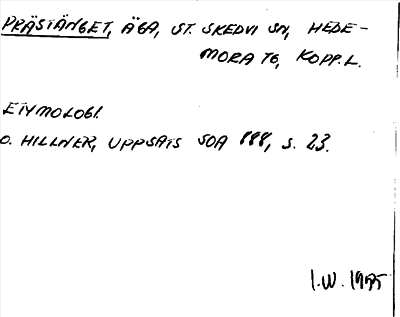 PRÄSTÄNGET, ÄGA, ST. SKEDVI SN, HEDE-
MORA TG, KOPP. L.
ETYMOLOGI.
O. HILLNER, UPPSATS SOA 188, S. 23.
I.W. 1975